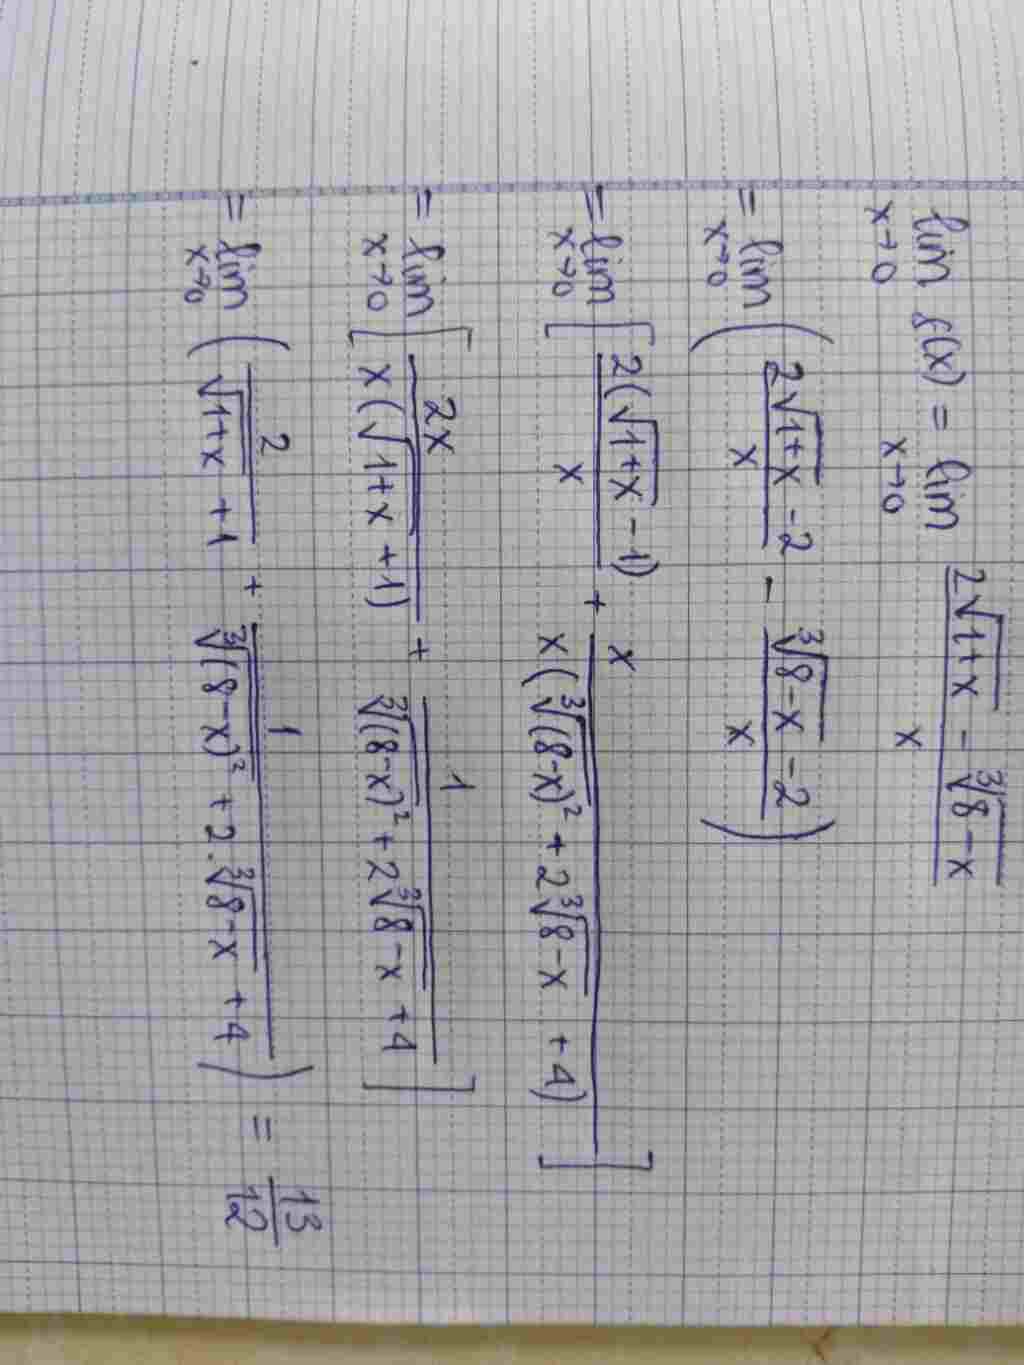 lim_{x→0} f(x) = lim_{x→0} (2√(1+x) - ∛(8-x))/x
= lim_{x→0} ((2√(1+x) - 2)/x - (∛(8-x) - 2)/x)
= lim_{x→0} [2(√(1+x) - 1)/x + x/(x(∛(8-x)² + 2∛(8-x) + 4))]
= lim_{x→0} [2x/(x(√(1+x) + 1)) + 1/(∛(8-x)² + 2∛(8-x) + 4)]
= lim_{x→0} (2/(√(1+x) + 1) + 1/(∛(8-x)² + 2.∛(8-x) + 4)) = 13/12